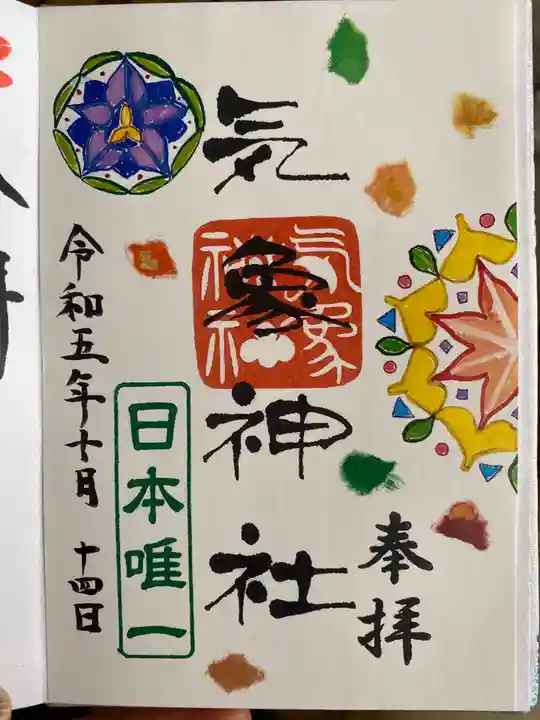 奉拝
気象神社
気象神社
日本唯一
令和五年十月 十四日